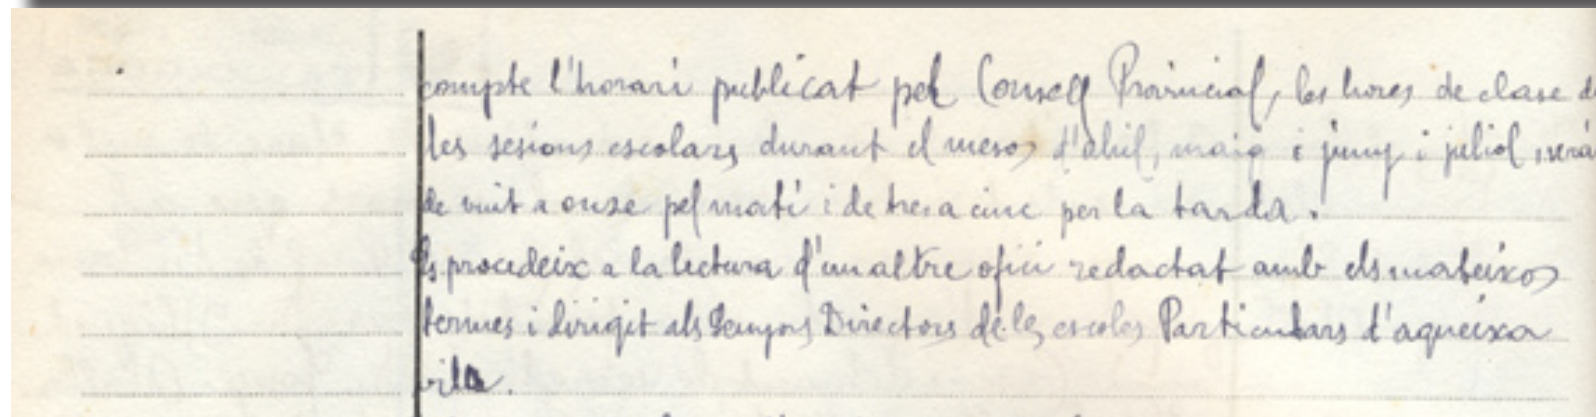 compte l'horari publicat pel Consell Provincial, les hores de clase de
les sesions escolars durant el mesos d'abril, maig i juny i juliol, serà
de vuit a onze pel matí i de tres a cinc per la tarda.
Es procedeix a la lectura d'un altre ofici redactat amb els mateixos
termes i dirigit als Senyors Directors de les escoles Particulars d'aqueixa
vila.